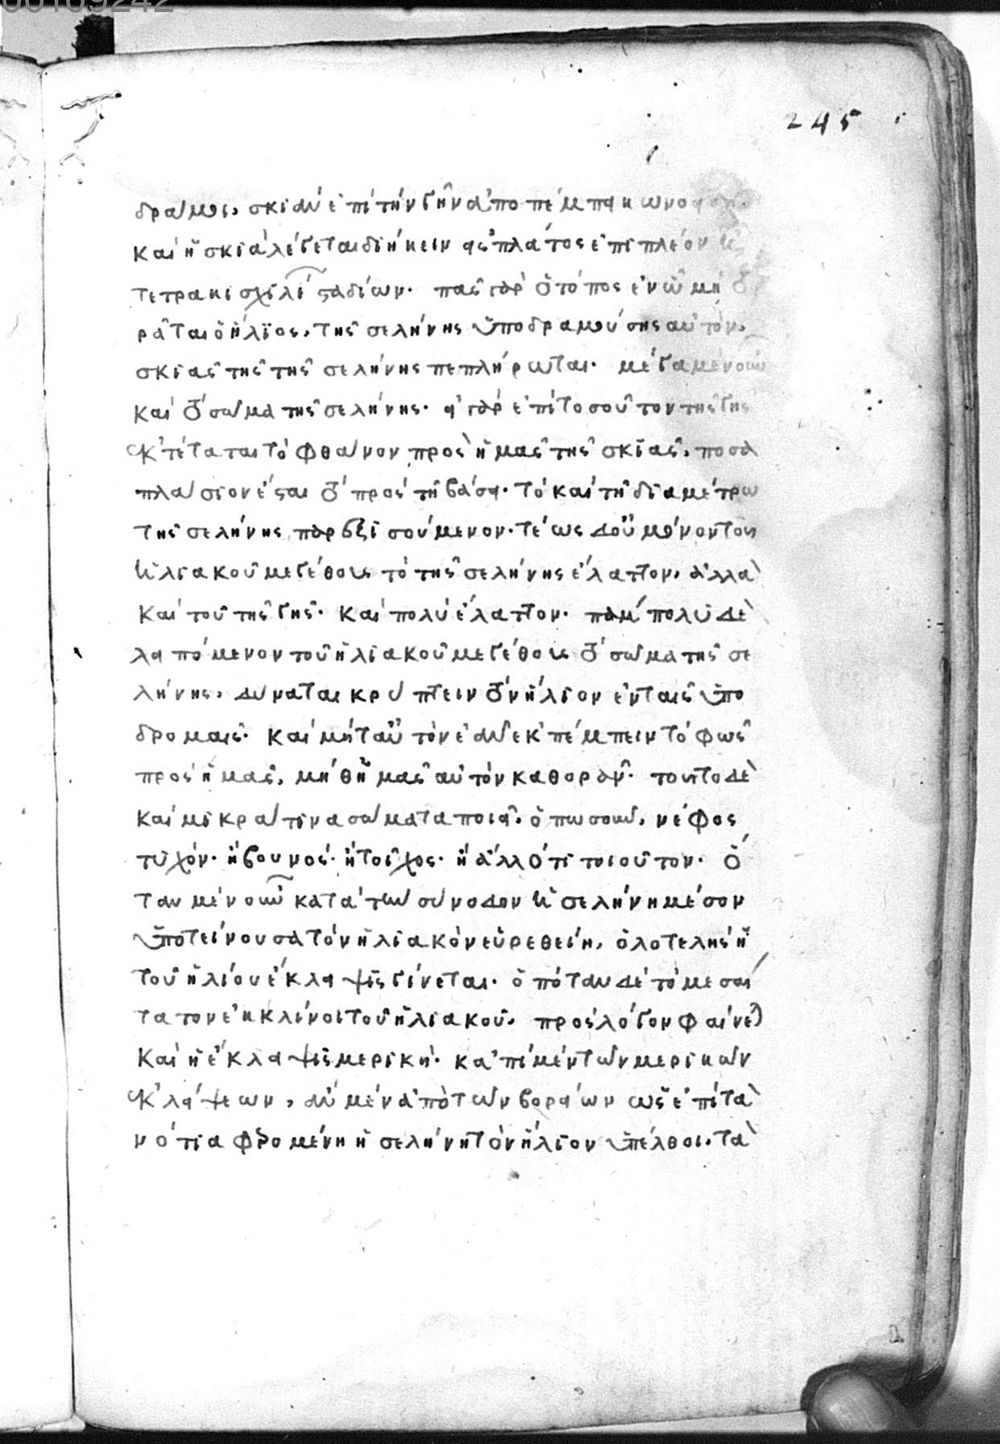 00109242
245
δράμοι, σκιὰν ἐπὶ τὴν γῆν ἀποπέμπει
καὶ ἡ σκιὰ λέγεται διήκειν εἰς πλάτος ἐπιπλέον ἢ
τετρακισχιλί σταδίων. πᾶς γὰρ ὁ τόπος ἐν ᾧ μὴ ὁ
ρᾶται ὁ ἥλιος, τῆς σελήνης ὑποδραμούσης αὐτὸν,
σκιᾶς τῆς τῆς σελήνης πεπλήρωται. μέγα μὲν οὖν
καὶ τὸ σῶμα τῆς σελήνης. εἰ γὰρ ἐπὶ τοσοῦτον τῆς γῆς
ἐκτέταται τὸ φθάνον πρὸς ἡμᾶς τῆς σκιᾶς, ποσα
πλάσιον ἔσται τὸ πρὸς τῇ βάσει. τὸ καὶ τῇ διαμέτρω
τῆς σελήνης παρεξισούμενον. τέως δ οὐ μόνον τοῦ
ἡλιακοῦ μεγέθους τὸ τῆς σελήνης ἔλαττον, ἀλλὰ
καὶ τοῦ τῆς γῆς. καὶ πολὺ ἔλαττον. πάμπολυ δὲ
λειπόμενον τοῦ ἡλιακοῦ μεγέθους τὸ σῶμα τῆς σε
λήνης, δύναται κρύπτειν τὸν ἥλιον ἐν ταῖς ὑπο
δρομαῖς. καὶ μήτ αὐτὸν ἐᾶν ἐκπέμπειν τὸ φῶς
πρὸς ἡμᾶς, μήθ ἡμᾶς αὐτὸν καθορᾶν. τοῦτο δὲ
καὶ μικρά τινα σώματα ποιεῖ, ὁπωσοῦν, νέφος
τυχόν. ἢ βουνὸς. ἢ τοῖχος. ἢ ἄλλό τι τοιοῦτον. ὅ
ταν μὲν οὖν κατὰ τὴν σύνοδον ἡ σελήνη μέσον
ὑποτείνουσα τὸν ἡλιακὸν εὑρεθείη, ὁλοτελὴς ἡ
τοῦ ἡλίου ἔκλειψις γίνεται. ὁπόταν δὲ τὸ μεσαί
τατον ἐκκλίνοι τοῦ ἡλιακοῦ, πρὸς λόγον φαίνε
καὶ ἡ ἔκλειψις μερική. κἀπὶ μὲν τῶν μερικῶν
ἐκλείψεων, ἂν μὲν ἀπὸ τῶν βορείων ὡς ἐπὶ τὰ
νότια φερομένη ἡ σελήνη τὸν ἥλιον ὑπέλθοι, τὰ